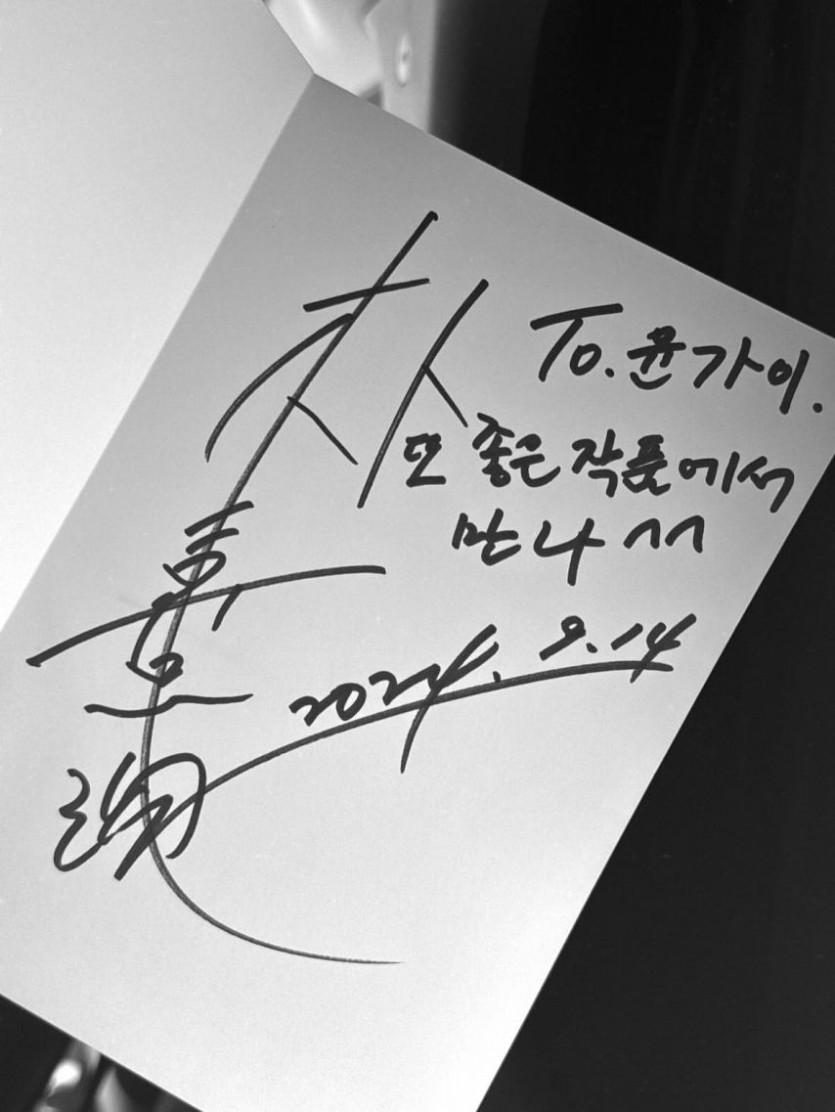 朴
To. 윤가이.
또 좋은 작품에서
만나 ^^
2024. 9. 14